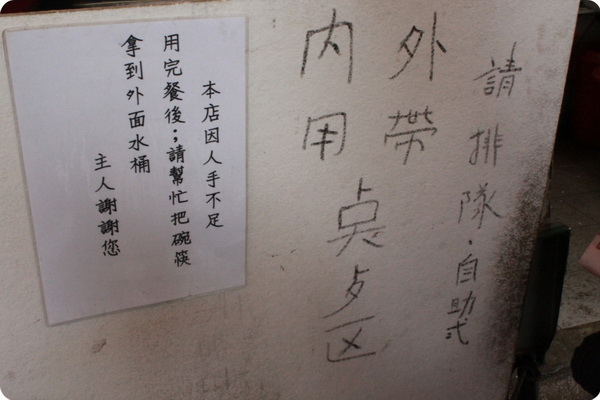 請排隊．自助式
外帶
内用
奌歺区
本店因人手不足
用完餐後；請幫忙把碗筷
拿到外面水桶
主人謝謝您